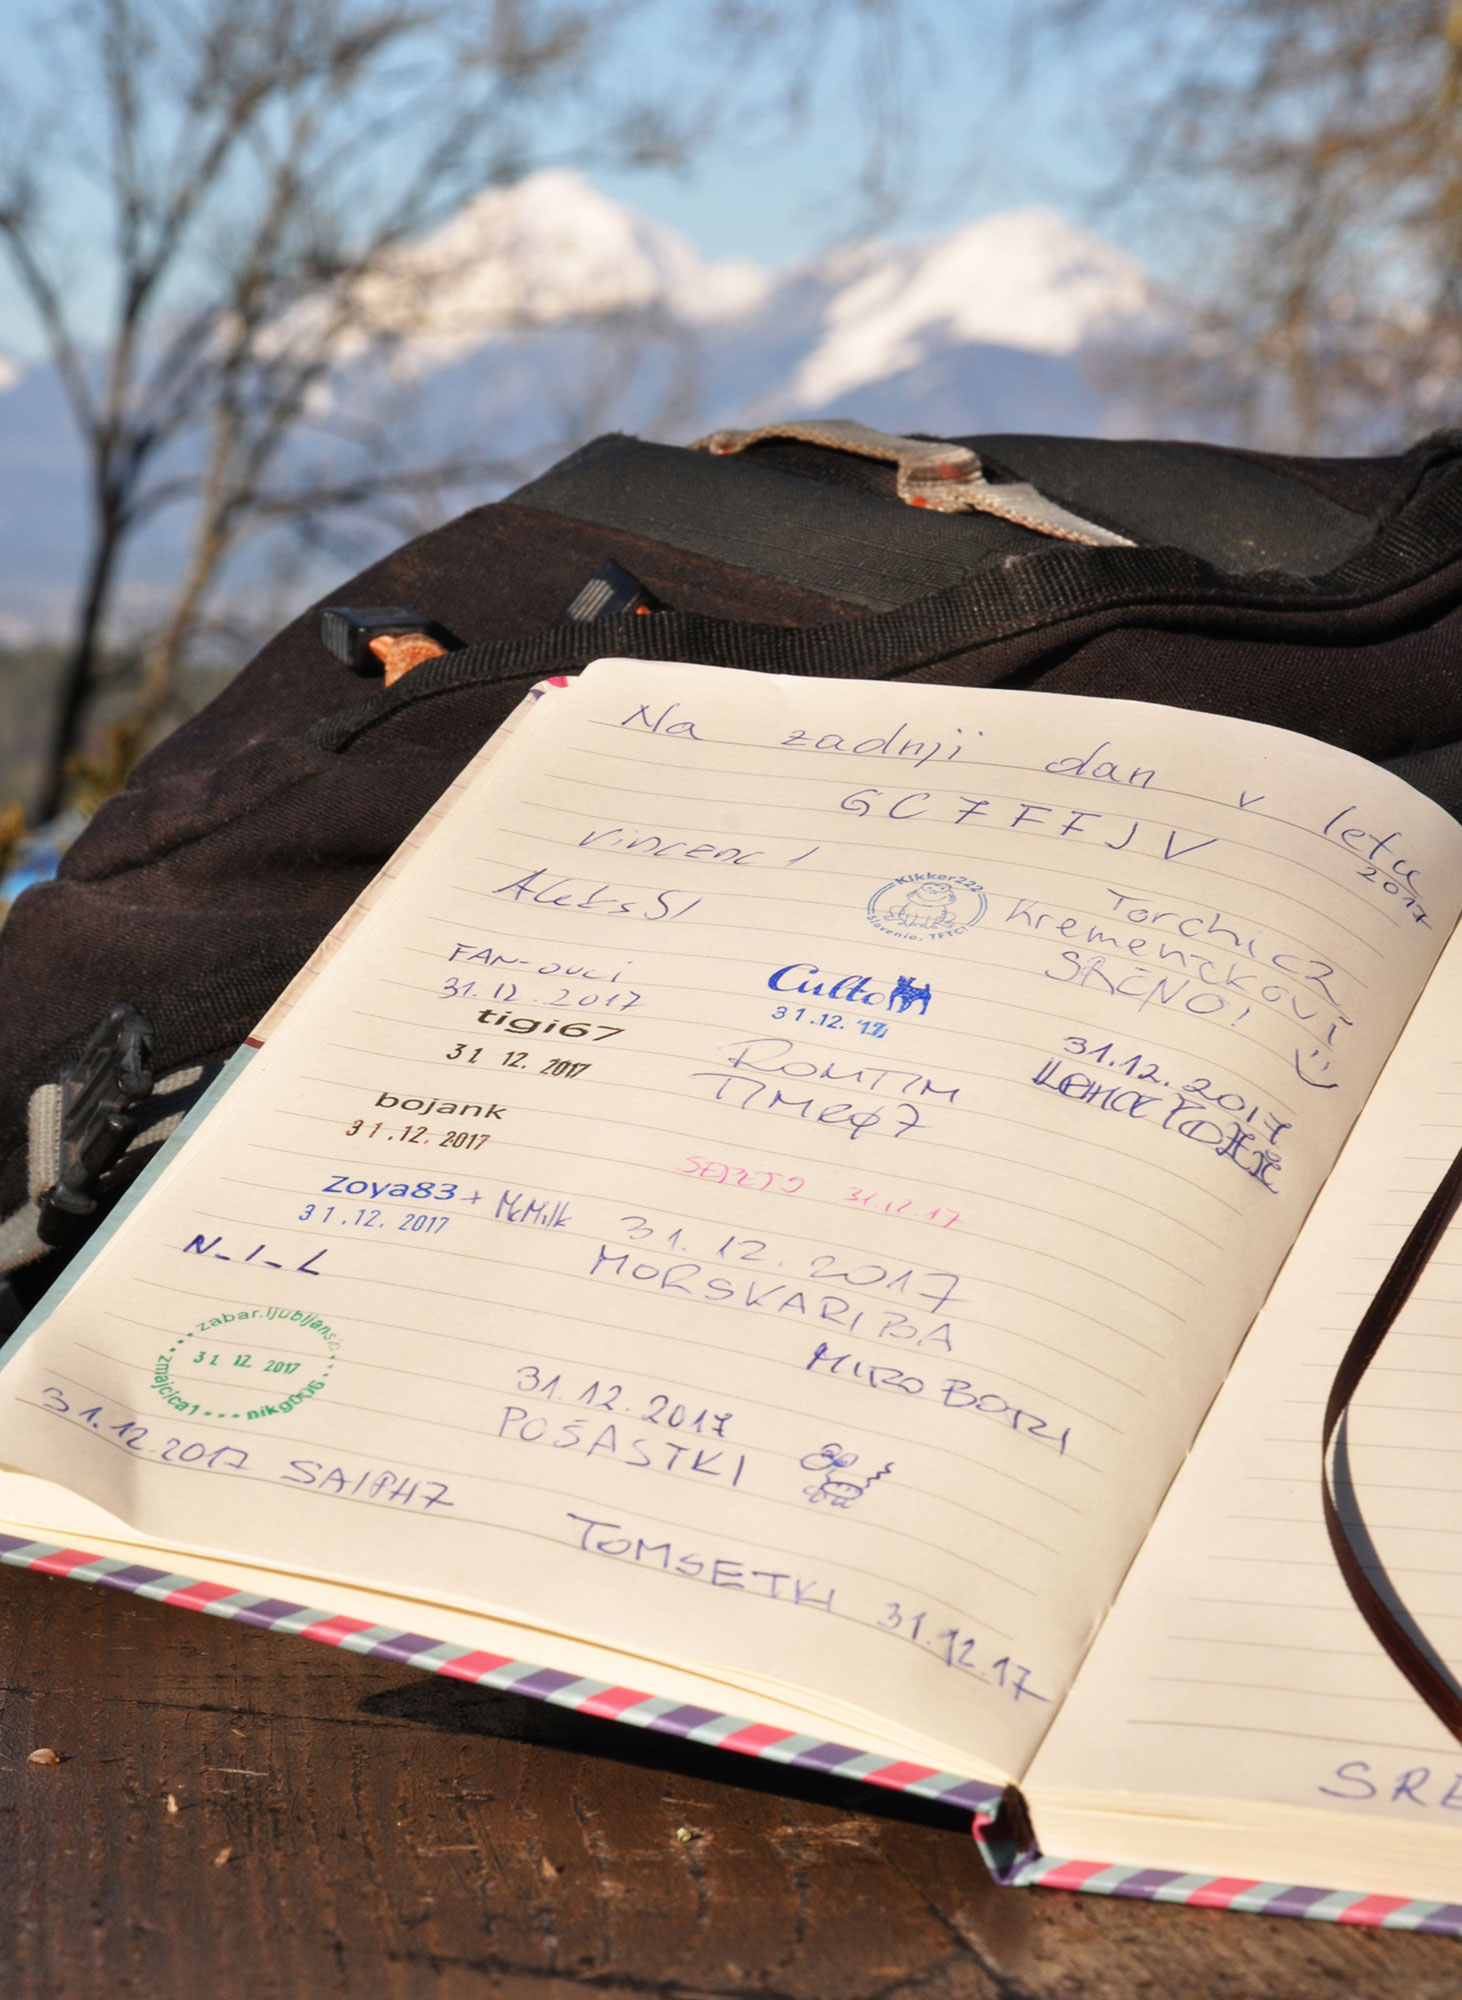 Na zadnji dan v letu
2017
GC7FFJV
vincenc1
AleksSI
Kikker222
Slovenia, TFTC!
Torchic2
Kremenčkovi
SREČNO!
31.12.2017
tigi67
31 12. 2017
Culto
31.12.'17
ROMTIM
31.12.2017
bojank
31.12.2017
31.12.17
zoya83 + McMilk
31.12. 2017
31.12.2017
MORSKARIBA
N_I_L
MIRO BOTRI
zabar.ljubljanski
31 12. 2017
zmajcica1 nikg006
31.12.2017
POŠASTKI
31.12.2017 SAIPH7
TOMSETKI 31.12.17
SRE